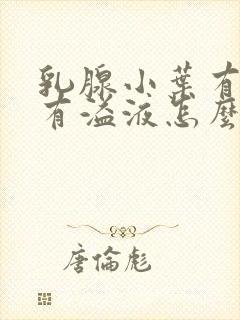 乳腺小葉有
有溢液怎麼
唐倫彪